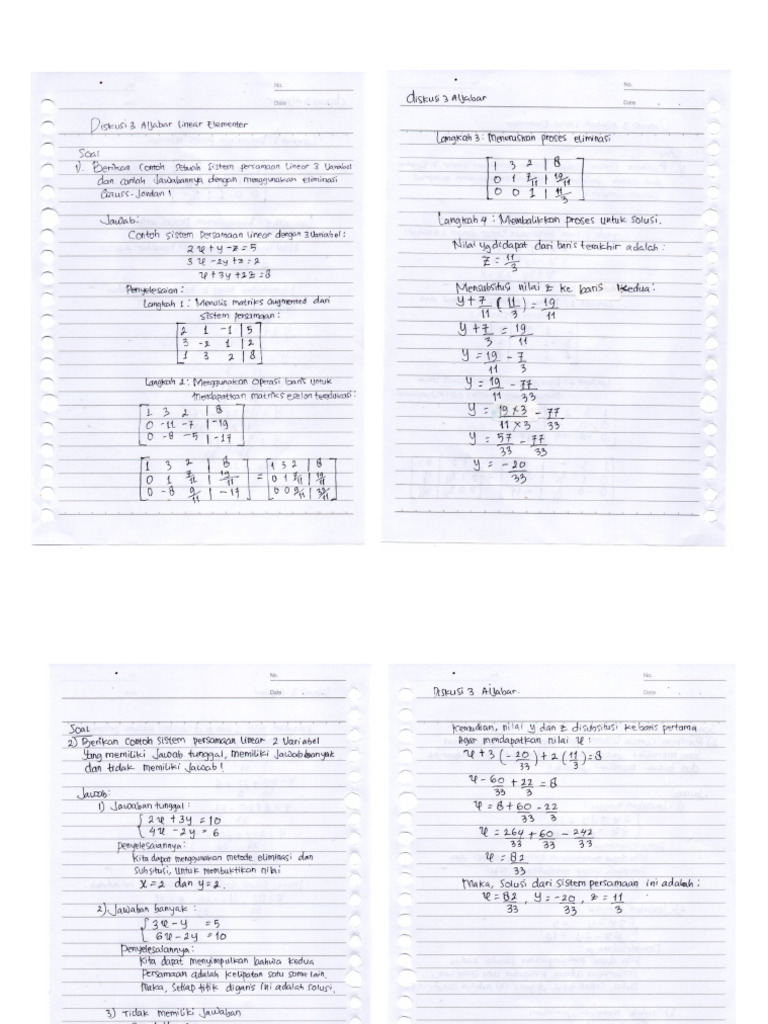 No.
Date
Diskusi 3 Aljabar Linear Elementer
Soal
1). Berikan contoh sebuah sistem persamaan linear 3 Variabel
dan contoh Jawabannya dengan menggunakan eliminasi
Gauss-Jordan !
Jawab:
Contoh sistem persamaan linear dengan 3 Variabel:
2x + y - z = 5
3x - 2y + z = 2
x + 3y + 2z = 8
Penyelesaian:
Langkah 1 : Menulis matriks augmented dari
sistem persamaan:
2 1 -1 | 5
3 -2 1 | 2
1 3 2 | 8
Langkah 2 : Menggunakan operasi baris untuk
mendapatkan matriks eselon tereduksi:
1 3 2 | 8
0 -11 -7 | -19
0 -8 -5 | -17
1 3 2 | 8 = 1 3 2 | 8
0 1 7/11 | 19/11 0 1 7/11 | 19/11
0 -8 9/11 | -17 0 0 9/11 | 33/11
No.
Diskusi 3 Aljabar
Date
Langkah 3 : Meneruskan proses eliminasi
1 3 2 | 8
0 1 7/11 | 19/11
0 0 1 | 11/3
Langkah 4 : Membalikkan proses untuk solusi.
Nilai yg didapat dari baris terakhir adalah:
z = 11/3
Mensubstitusi nilai z ke baris kedua:
y + 7/11 (11/3) = 19/11
y + 7/3 = 19/11
y = 19/11 - 7/3
y = 19/11 - 77/33
y = 19×3/11×3 - 77/33
y = 57/33 - 77/33
y = -20/33
No.
Date
Soal
2) Berikan contoh sistem persamaan linear 2 Variabel
yang memiliki Jawab tunggal, memiliki Jawab banyak
dan tidak memiliki Jawab !
Jawab:
1) Jawaban tunggal:
2x + 3y = 10
4x - 2y = 6
Penyelesaiannya:
Kita dapat menggunakan metode eliminasi dan
Substitusi, untuk membuktikan nilai
x = 2 dan y = 2.
2) Jawaban banyak :
3x - y = 5
6x - 2y = 10
Penyelesaiannya:
Kita dapat menyimpulkan bahwa kedua
Persamaan adalah kelipatan satu sama lain.
Maka, setiap titik digaris ini adalah solusi.
3) Tidak memiliki Jawaban
No.
Diskusi 3 Aljabar.
Date
Kemudian, nilai y dan z disubstitusi ke baris pertama
Agar mendapatkan nilai x :
x + 3 (-20/33) + 2 (11/3) = 8
x - 60/33 + 22/3 = 8
x = 8 + 60/33 - 22/3
x = 264/33 + 60/33 - 242/33
x = 82/33
Maka, solusi dari sistem persamaan ini adalah :
x = 82/33 , y = -20/33 , z = 11/3